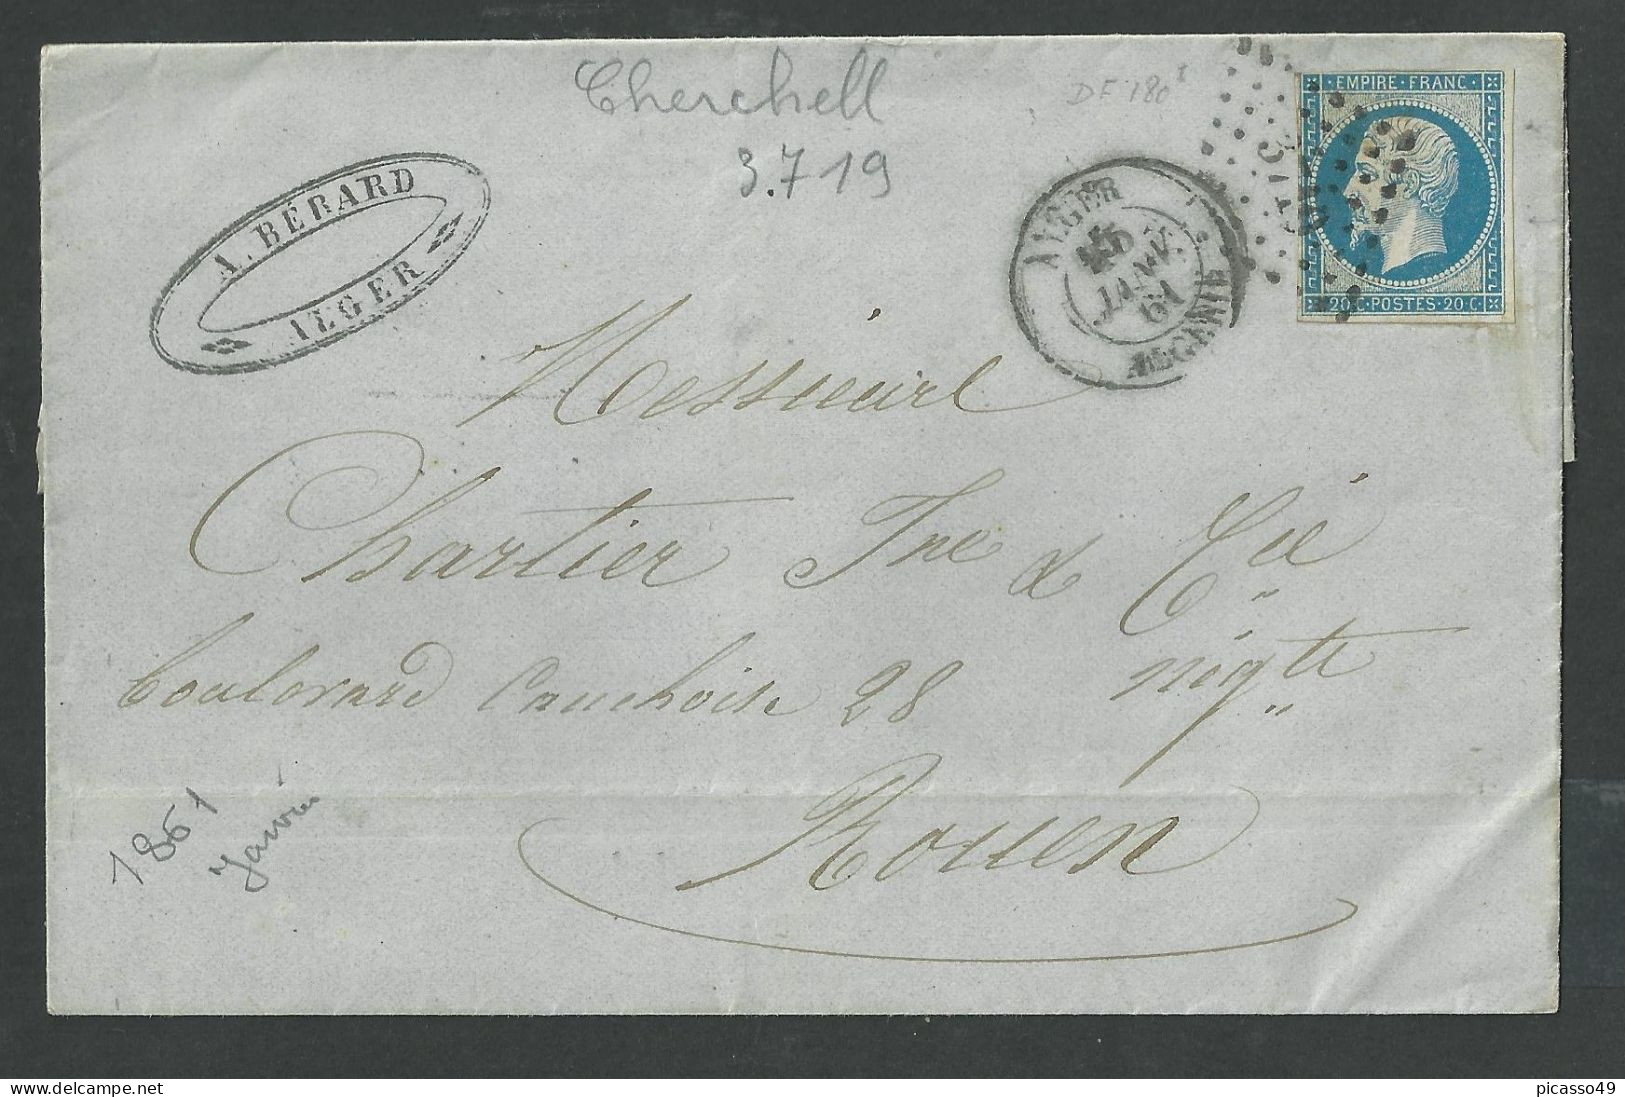 Cherchell
3.719
DF 180
A. BÉRARD
ALGER
ALGER
15
JANV.
61
ALGÉRIE
EMPIRE · FRANC ·
20 C · POSTES · 20 C
Messieurs
Chartier Jne & Cie
boulevard Cauchoise 28 négts
Rouen
1861
Janvier
delcampe.net
picasso49